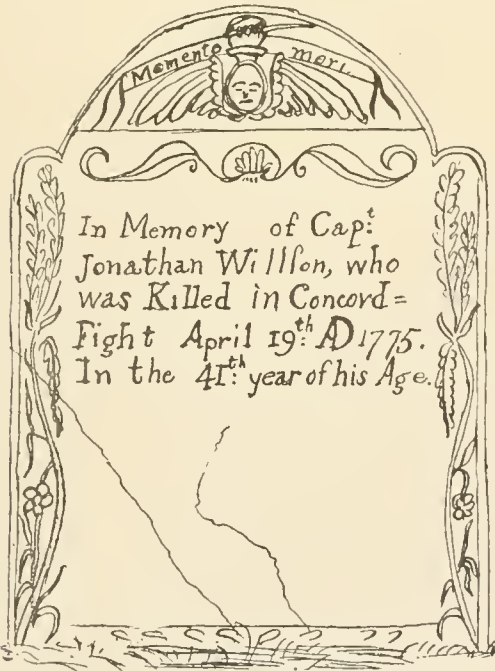 Memento mori.
In Memory of Capt
Jonathan Willſon, who
was Killed in Concord=
Fight April 19th AD 1775.
In the 41th year of his Age.